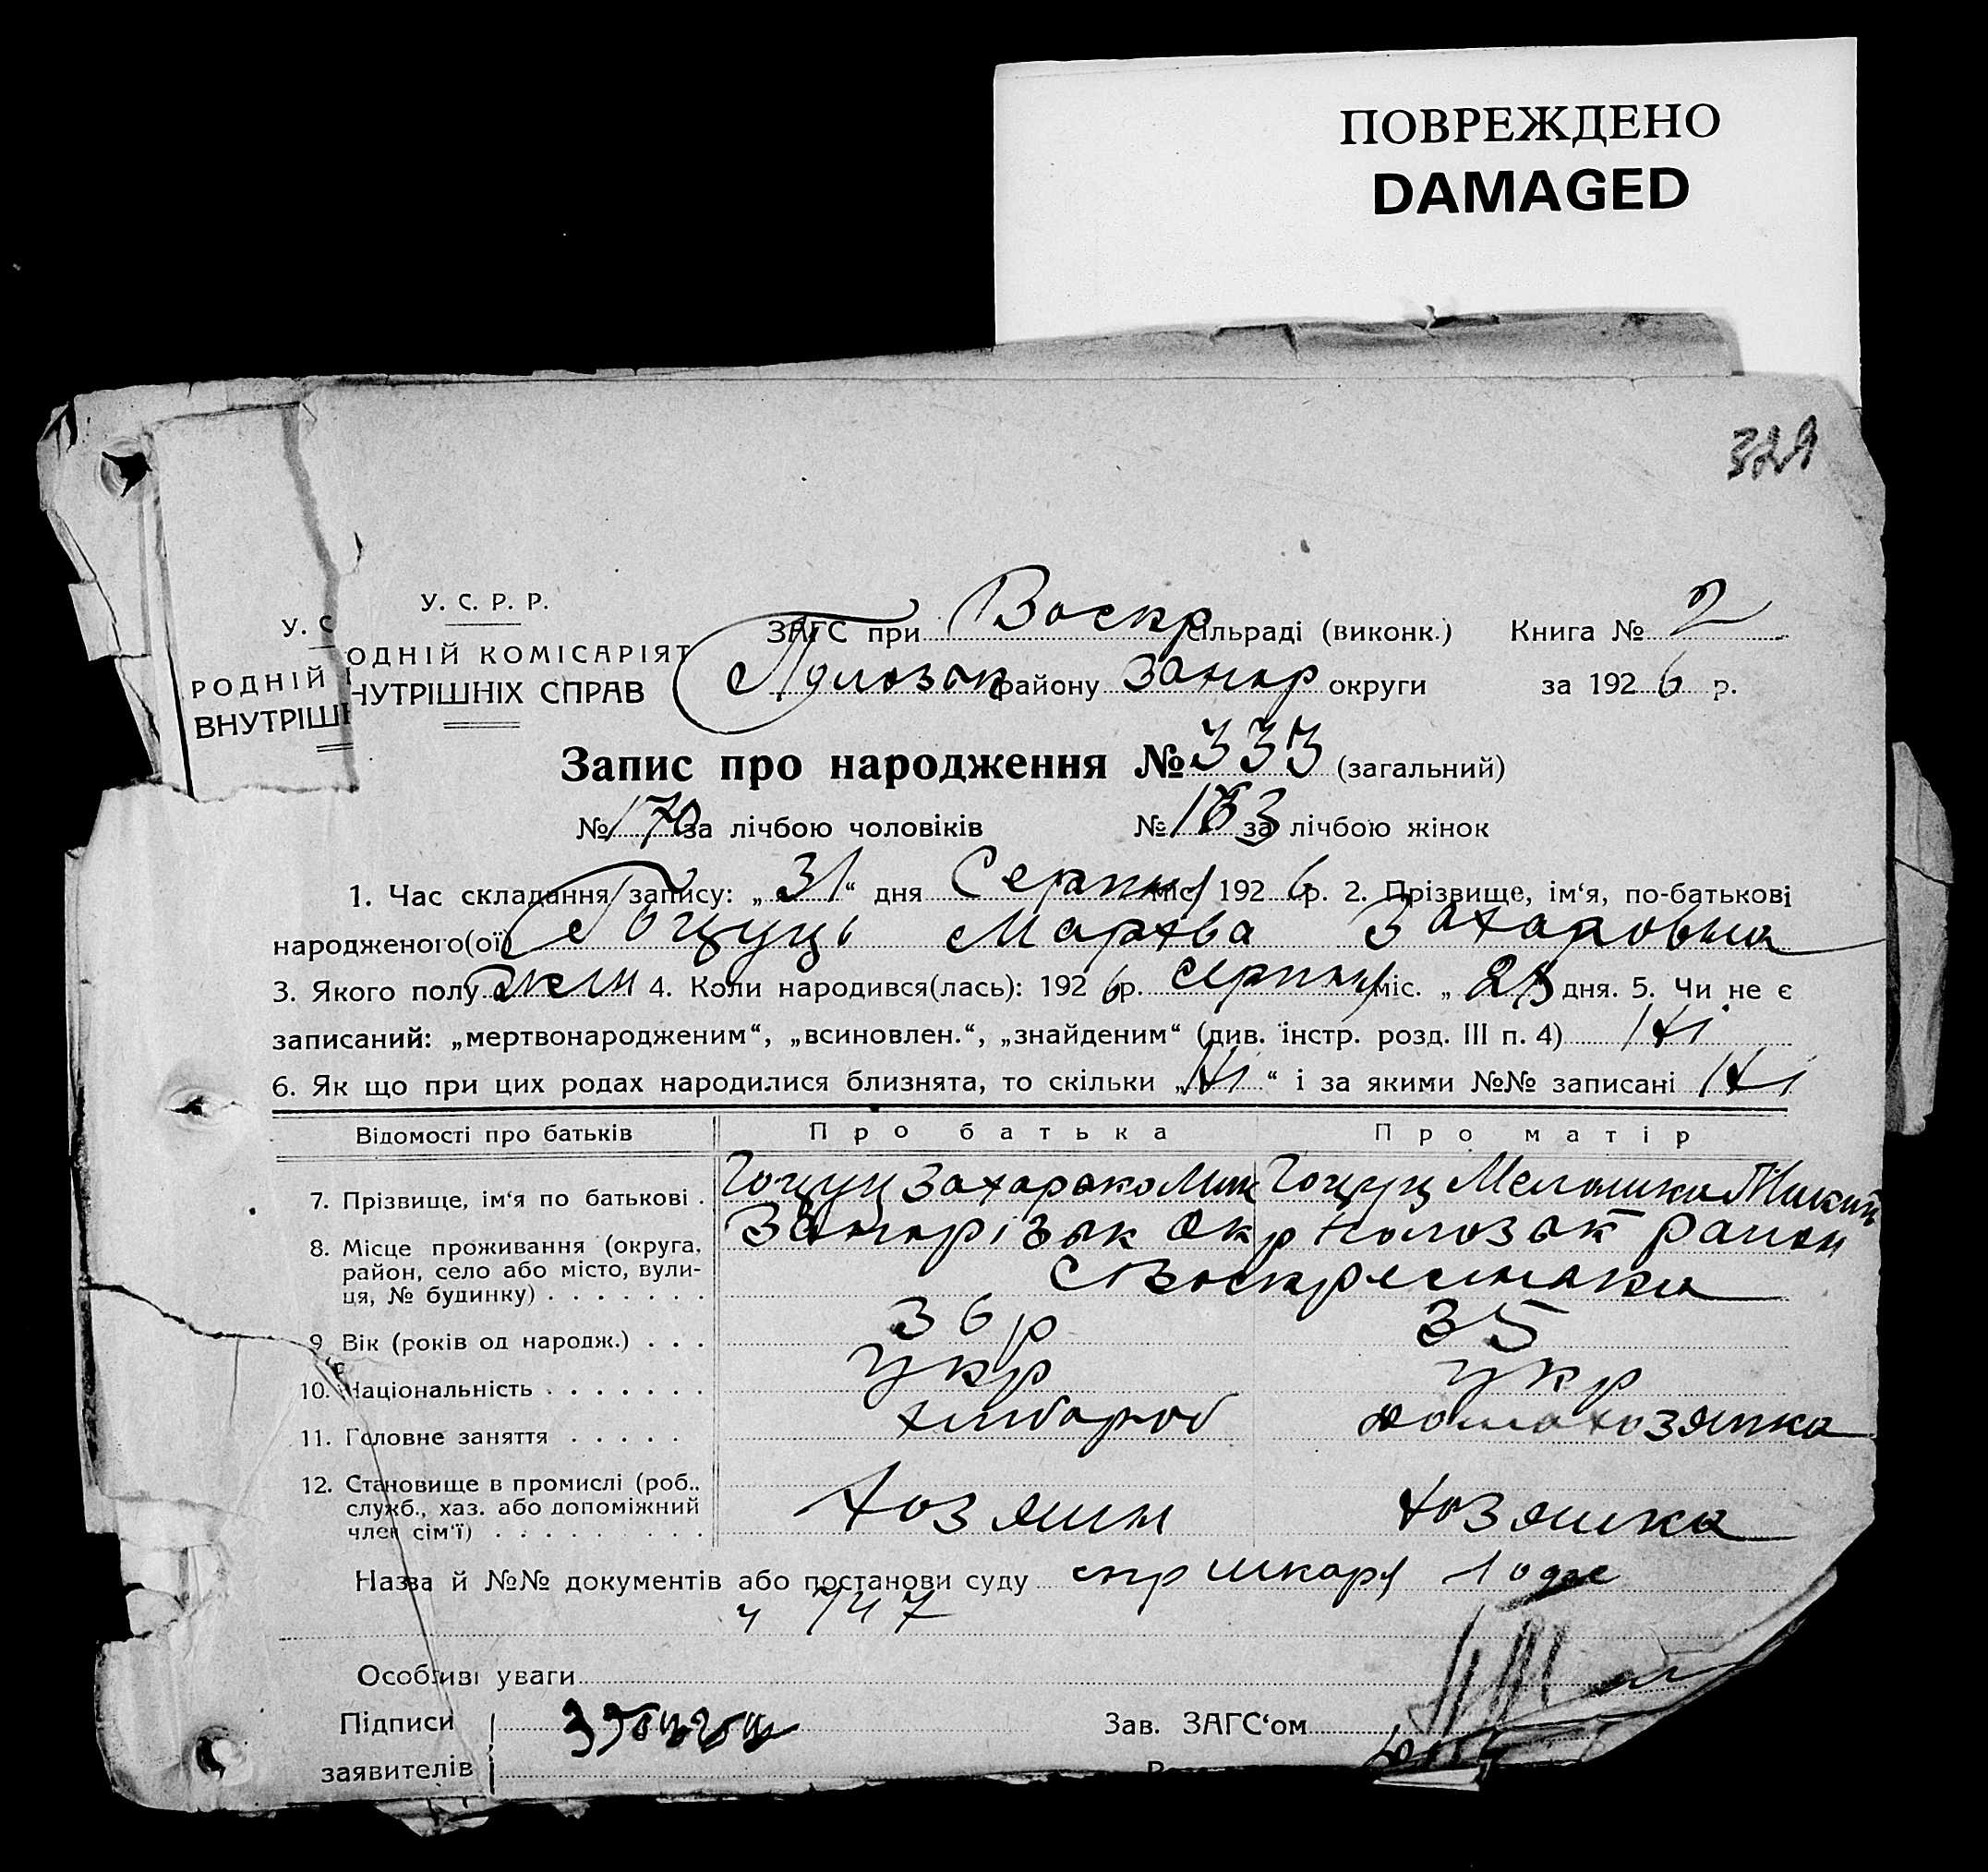 ПОВРЕЖДЕНО
DAMAGED
329
У. С. Р. Р.
У. С
ОДНІЙ КОМІСАРІЯТ
НУТРІШНІХ СПРАВ
РОДНІЙ
ВНУТРІШ
ЗАГС при Воскр сільраді (виконк.) Книга № 2
Пологзык району Запор округи за 1926 р.
Запис про народження № 333 (загальний)
№ 170 за лічбою чоловіків № 163 за лічбою жінок
1. Час складання запису: „31“ дня Серпня міс. 1926 р. 2. Прізвище, ім‘я, по-батькові
народженого(ої) Гоцуць Мархва Захаровна
3. Якого полу жен 4. Коли народився(лась): 1926 р. серпня міс. „28 дня. 5. Чи не є
записаний: „мертвонародженим“, „всиновлен.“, „знайденим“ (див. інстр. розд. III п. 4) Ні
6. Як що при цих родах народилися близнята, то скільки „Ні“ і за якими №№ записані Ні
Відомості про батьків Про батька Про матір
7. Прізвище, ім‘я по батькові . Гоцуц Захарако Гоцуц Меланика Микит
8. Місце проживання (округа, Запорізьк Окр Полозьк район
район, село або місто, вули-
ця, № будинку) . . . . . . . с Воскресенька
9 Вік (років од народж.) . . . 36 р 35
10. Національність . . . . . . . укр укр
11. Головне заняття . . . . . хлибороб домахозяика
12. Становище в промислі (роб.,
служб., хаз. або допоміжний
член сім‘ї) . . . . . . . . . хозяин хозяика
Назва й №№ документів або постанови суду
Особливі уваги
Підписи
Зав. ЗАГС‘ом
заявителів